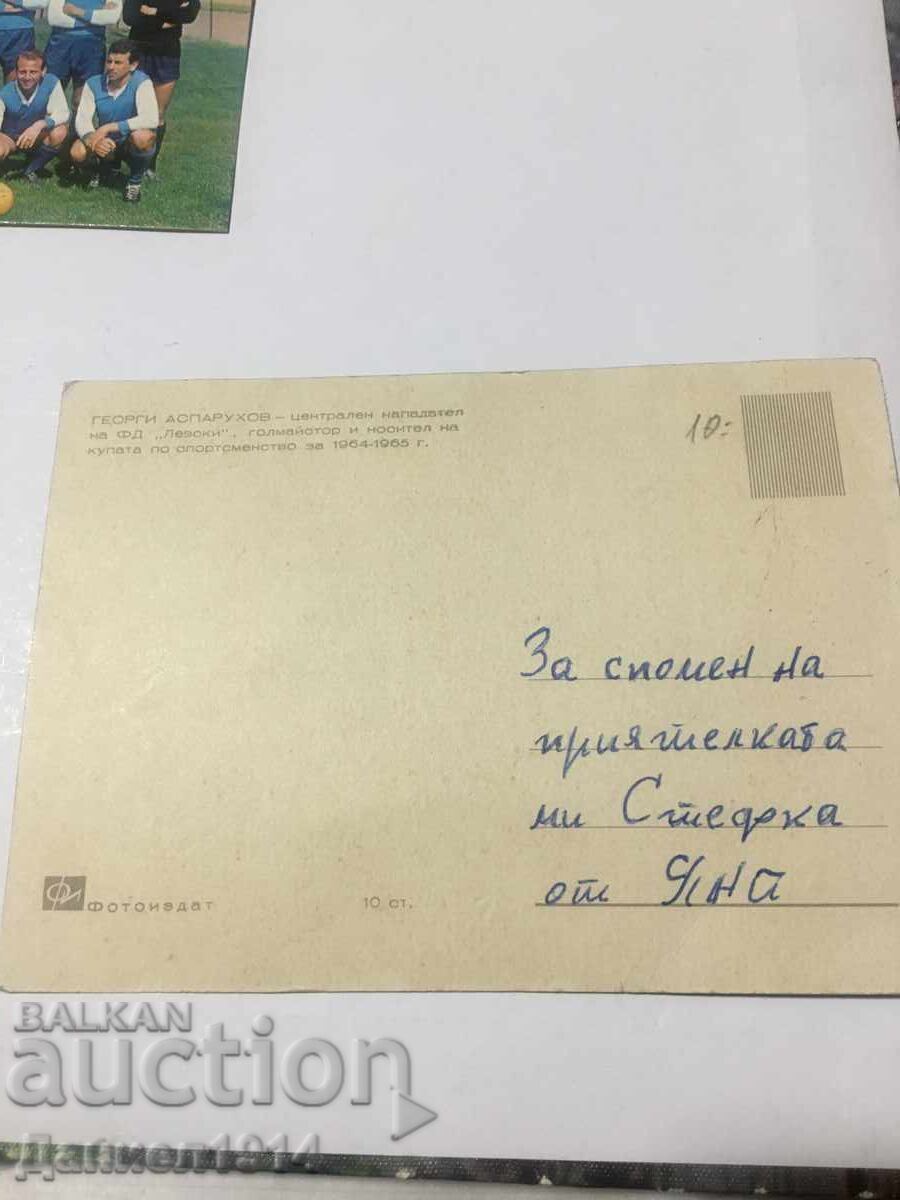 ГЕОРГИ АСПАРУХОВ – централен нападател
на ФД „Левски", голмайстор и носител на
купата по спортсменство за 1964-1965 г.
10=
За спомен на
приятелката
ми Стефка
от Яна
ФИ Фотоиздат
10 ст.
BALKAN
auction
Даниел1914